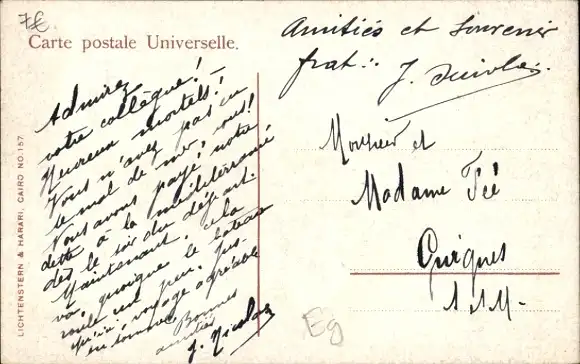 7€
Carte postale Universelle.
Amitiés et souvenir
frat:. J.
Admirez
votre collègue!
Heureux mortels!
Vous n'avez pas eu
le mal de mer, vous!
Nous avons payé notre
dette à la méditerranée
dès le soir du départ.
Maintenant, cela
va, quoique le bateau
roule un peu. Jus-
qu'ici voyage agréable
en somme. Bonnes
amitiés
J. Nicolas
Monsieur et
Madame Fié
Guignes
S. & M.
LICHTENSTERN & HARARI, CAIRO NO. 157
Eg